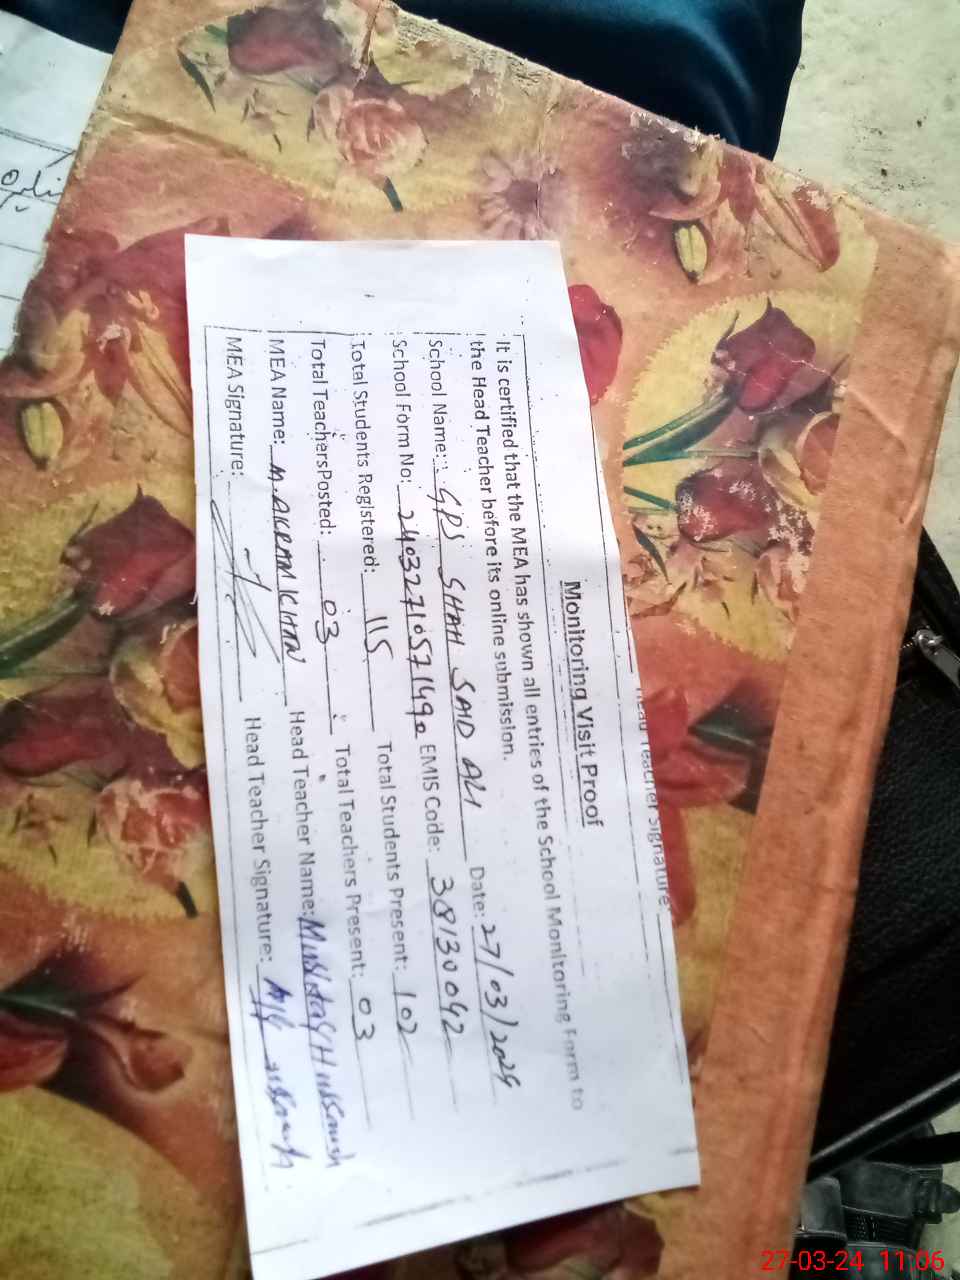 Head Teacher Signature:
Monitoring Visit Proof
It is certified that the MEA has shown all entries of the School Monitoring Form to
the Head Teacher before its online submission.
School Name: GPS SHAH SAID ALI Date: 27/03/2024
School Form No: EMIS Code: 38130042
Total Students Registered: 115 Total Students Present: 102
Total TeachersPosted: 03 Total Teachers Present: 03
MEA Name: M. AKRAM KHAN Head Teacher Name:
MEA Signature: Head Teacher Signature:
27-03-24 11:06